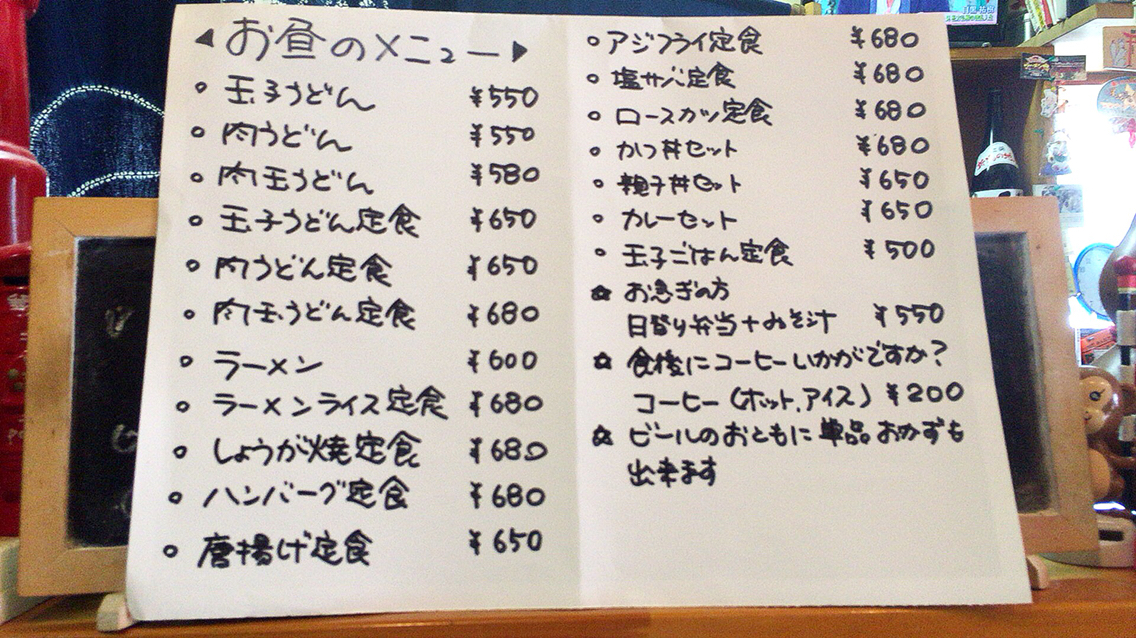 お昼のメニュー
玉子うどん ¥550
肉うどん ¥550
肉玉うどん ¥580
玉子うどん定食 ¥650
肉うどん定食 ¥650
肉玉うどん定食 ¥680
ラーメン ¥600
ラーメンライス定食 ¥680
しょうが焼定食 ¥680
ハンバーグ定食 ¥680
唐揚げ定食 ¥650
アジフライ定食 ¥680
塩サバ定食 ¥680
ロースカツ定食 ¥680
かつ丼セット ¥680
親子丼セット ¥650
カレーセット ¥650
玉子ごはん定食 ¥500
☆ お急ぎの方
日替り弁当+みそ汁 ¥550
☆ 食後にコーヒーいかがですか?
コーヒー(ホット,アイス) ¥200
☆ ビールのおともに単品おかずも
出来ます